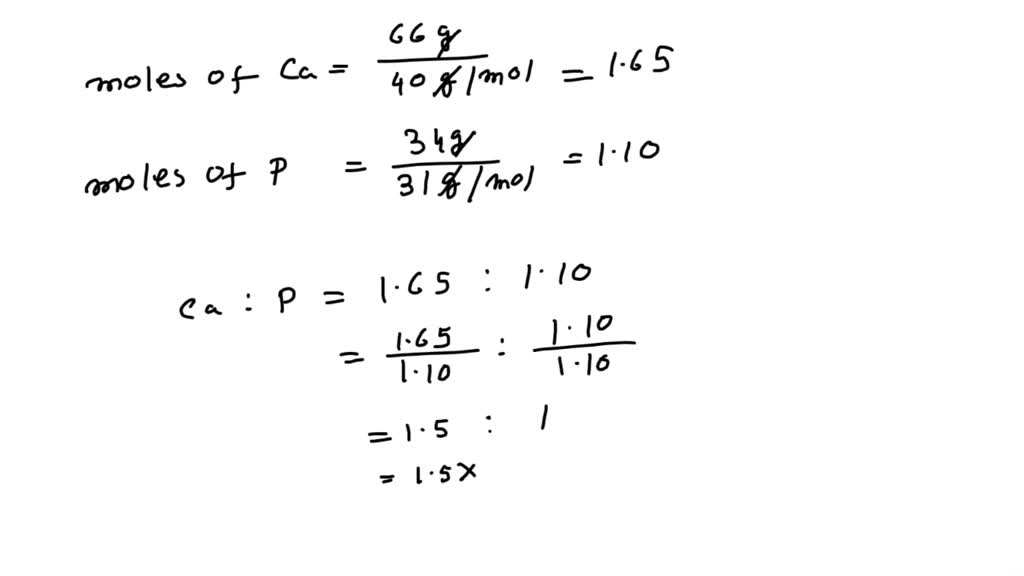 moles of Ca = 66 g / 40 g/mol = 1.65
moles of P = 34g / 31g/mol = 1.10
Ca : P = 1.65 : 1.10
= 1.65/1.10 : 1.10/1.10
= 1.5 : 1
= 1.5×